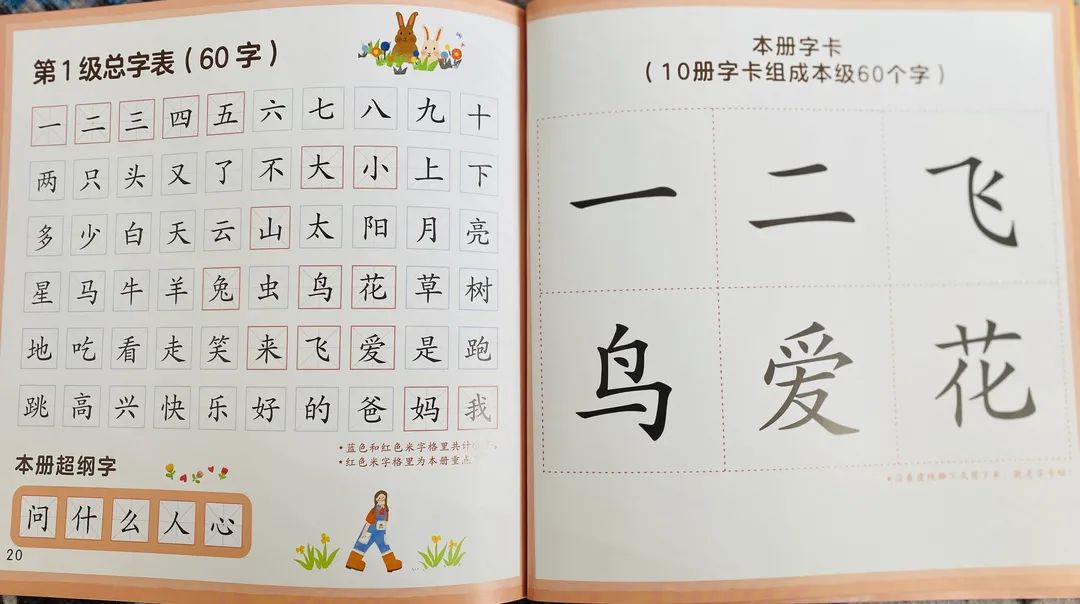 第1级总字表（60字）
一 二 三 四 五 六 七 八 九 十
两 只 头 又 了 不 大 小 上 下
多 少 白 天 云 山 太 阳 月 亮
星 马 牛 羊 兔 虫 鸟 花 草 树
地 吃 看 走 笑 来 飞 爱 是 跑
跳 高 兴 快 乐 好 的 爸 妈 我
•蓝色和红色米字格里共计
•红色米字格里为本册重点
本册超纲字
问 什 么 人 心
20
本册字卡
（10册字卡组成本级60个字）
一 二 飞
鸟 爱 花